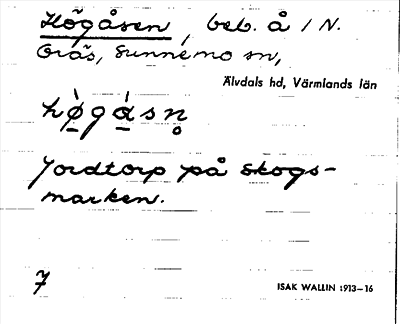 Högåsen, beb. å / N.
Gräs, Sunnemo sn,
Älvdals hd, Värmlands län
hø̀gásn̥
Jordtorp på skogs-
marken.
7
ISAK WALLIN 1913–16